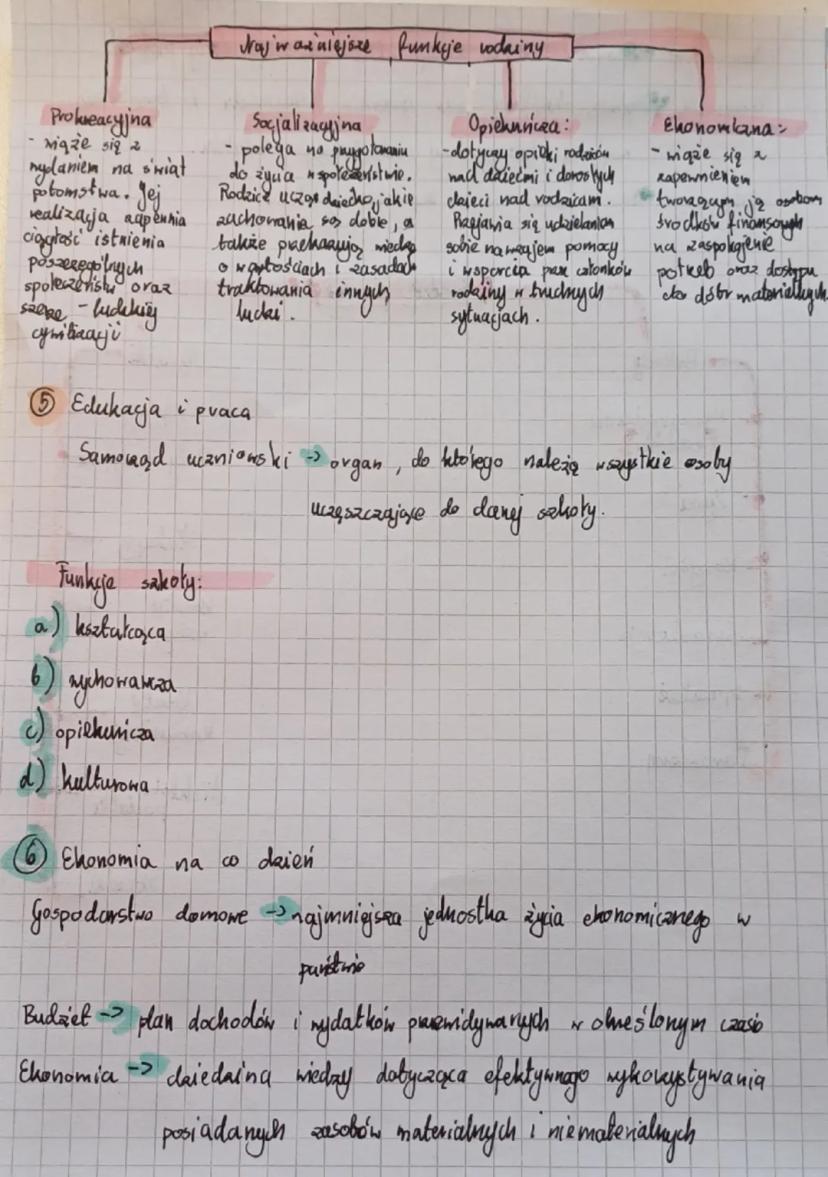 Najważniejsze funkcje rodziny
Prokreacyjna
- wiąże się z
wydaniem na świat
potomstwa. Jej
realizacja zapewnia
ciągłość istnienia
poszczególnych
społeczeństw oraz
szerze - ludzkiej
cywilizacji
Socjalizacyjna
- polega na przygotowaniu
do życia w społeczeństwie.
Rodzice uczą dziecko, jakie
zachowania są dobre, a
także przekazują wiedzę
o wartościach i zasadach
traktowania innych
ludzi.
Opiekuńcza:
- dotyczy opieki rodziców
nad dziećmi i dorosłych
dzieci nad rodzicami.
Przejawia się udzielaniem
sobie nawzajem pomocy
i wsparcia przez członków
rodziny w trudnych
sytuacjach.
Ekonomiczna:
- wiąże się z
zapewnieniem
tworzącym ją osobom
środków finansowych
na zaspokojenie
potrzeb oraz dostępu
do dóbr materialnych
5 Edukacja i praca
Samorząd uczniowski -> organ, do którego należą wszystkie osoby
uczęszczające do danej szkoły.
Funkcje szkoły:
a) kształcąca
b) wychowawcza
c) opiekuńcza
d) kulturowa
6 Ekonomia na co dzień
Gospodarstwo domowe -> najmniejsza jednostka życia ekonomicznego w
państwie
Budżet -> plan dochodów i wydatków przewidywanych w określonym czasie
Ekonomia -> dziedzina wiedzy dotycząca efektywnego wykorzystywania
posiadanych zasobów materialnych i niematerialnych